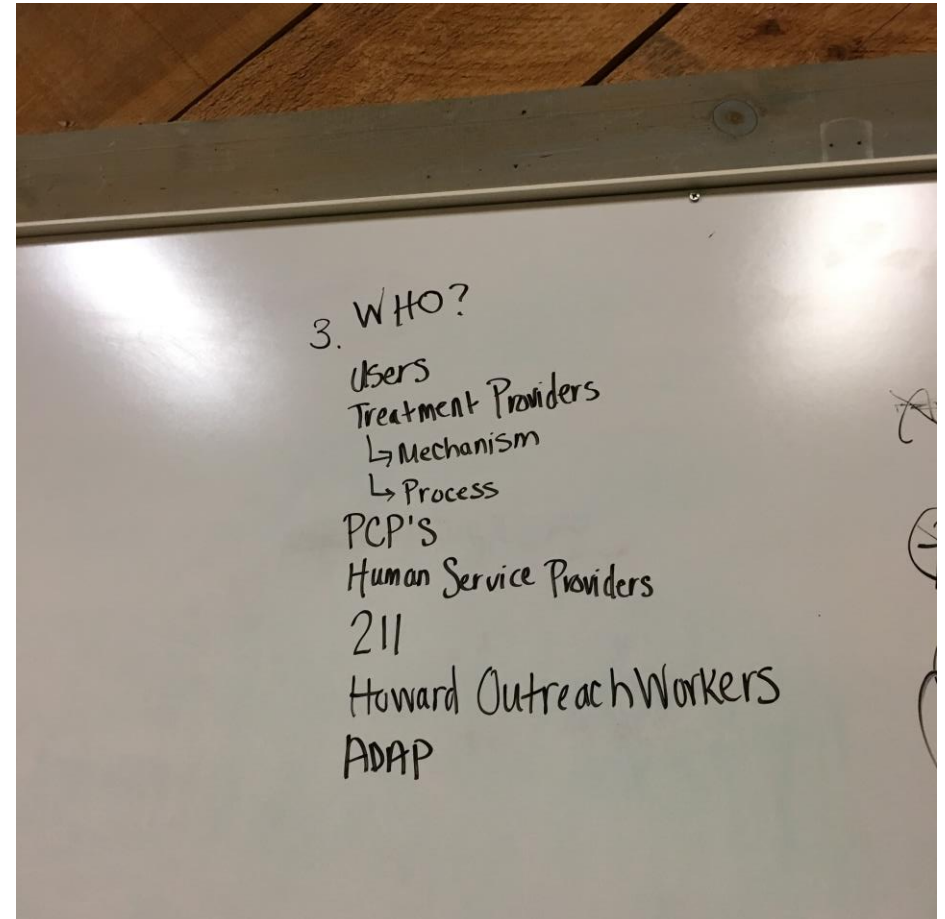 3. WHO?
Users
Treatment Providers
↳ Mechanism
↳ Process
PCP'S
Human Service Providers
211
Howard Outreach Workers
ADAP